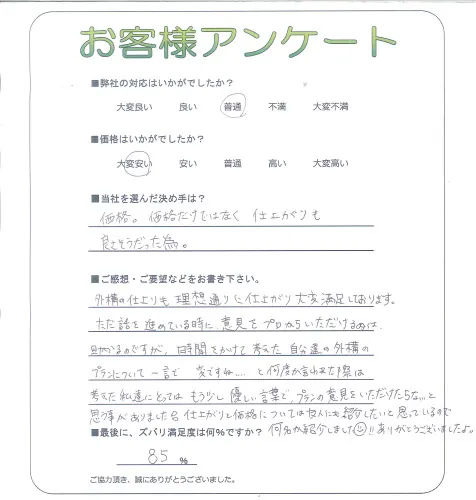 お客様アンケート
■弊社の対応はいかがでしたか？
大変良い 良い 普通 不満 大変不満
■価格はいかがでしたか？
大変安い 安い 普通 高い 大変高い
■当社を選んだ決め手は？
価格。価格だけではなく 仕上がりも
良さそうだった為。
■ご感想・ご要望などをお書き下さい。
外構の仕上りも 理想通りに仕上がり 大変満足しております。
ただ話を進めている時に、意見をプロからいただけるのは、
助かるのですが、時間をかけて考えた 自分達の外構の
プランについて 一言で 変ですね…. と何度か言われた際は
考えた私達にとっては もう少し 優しい言葉で、プランの意見をいただけたらな…と
思う事がありましたが 仕上がりと価格については友人にも紹介したいと思っているので
■最後に、ズバリ満足度は何％ですか？ 何名か紹介しました!!ありがとうございましたよ。
85 %
ご協力頂き、誠にありがとうございました。